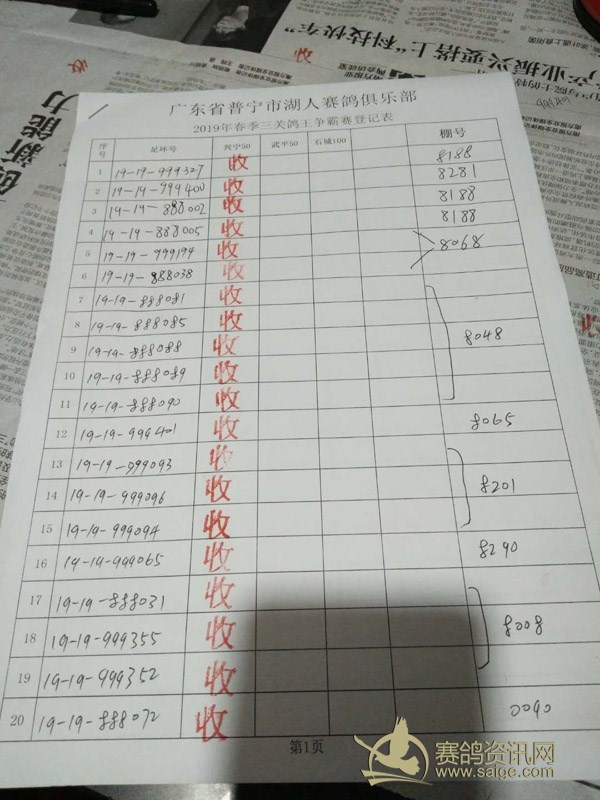 产业振兴要搭上“科技快车”
创新能力
收
广东省普宁市湖人赛鸽俱乐部
2019年春季三关鸽王争霸赛登记表
序号 足环号 兴宁50 武平50 石城100 棚号
1 19-19-999327 收 8188
2 19-19-999400 收 8281
3 19-19-888002 收 8188
4 19-19-888005 收 8188
5 19-19-999194 收 8068
6 19-19-888038 收
7 19-19-888081 收
8 19-19-888085 收
9 19-19-888088 收 8048
10 19-19-888089 收
11 19-19-888090 收
12 19-19-999401 收 8065
13 19-19-999093 收
14 19-19-999096 收 8201
15 19-19-999094 收
16 19-19-999065 收 8290
17 19-19-888031 收
18 19-19-999355 收 8008
19 19-19-999352 收
20 19-19-888072 收 0090
第1页
赛鸽资讯网
www.saige.com